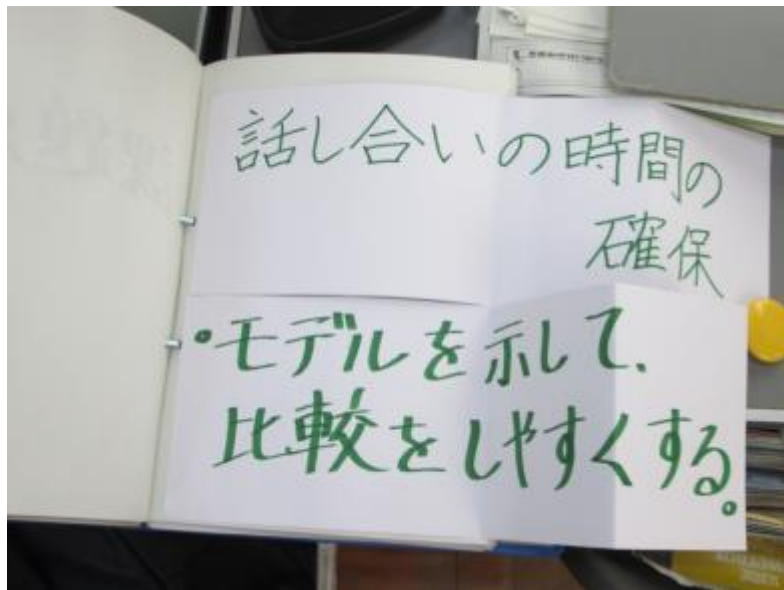 話し合いの時間の
確保
・モデルを示して、
比較をしやすくする。